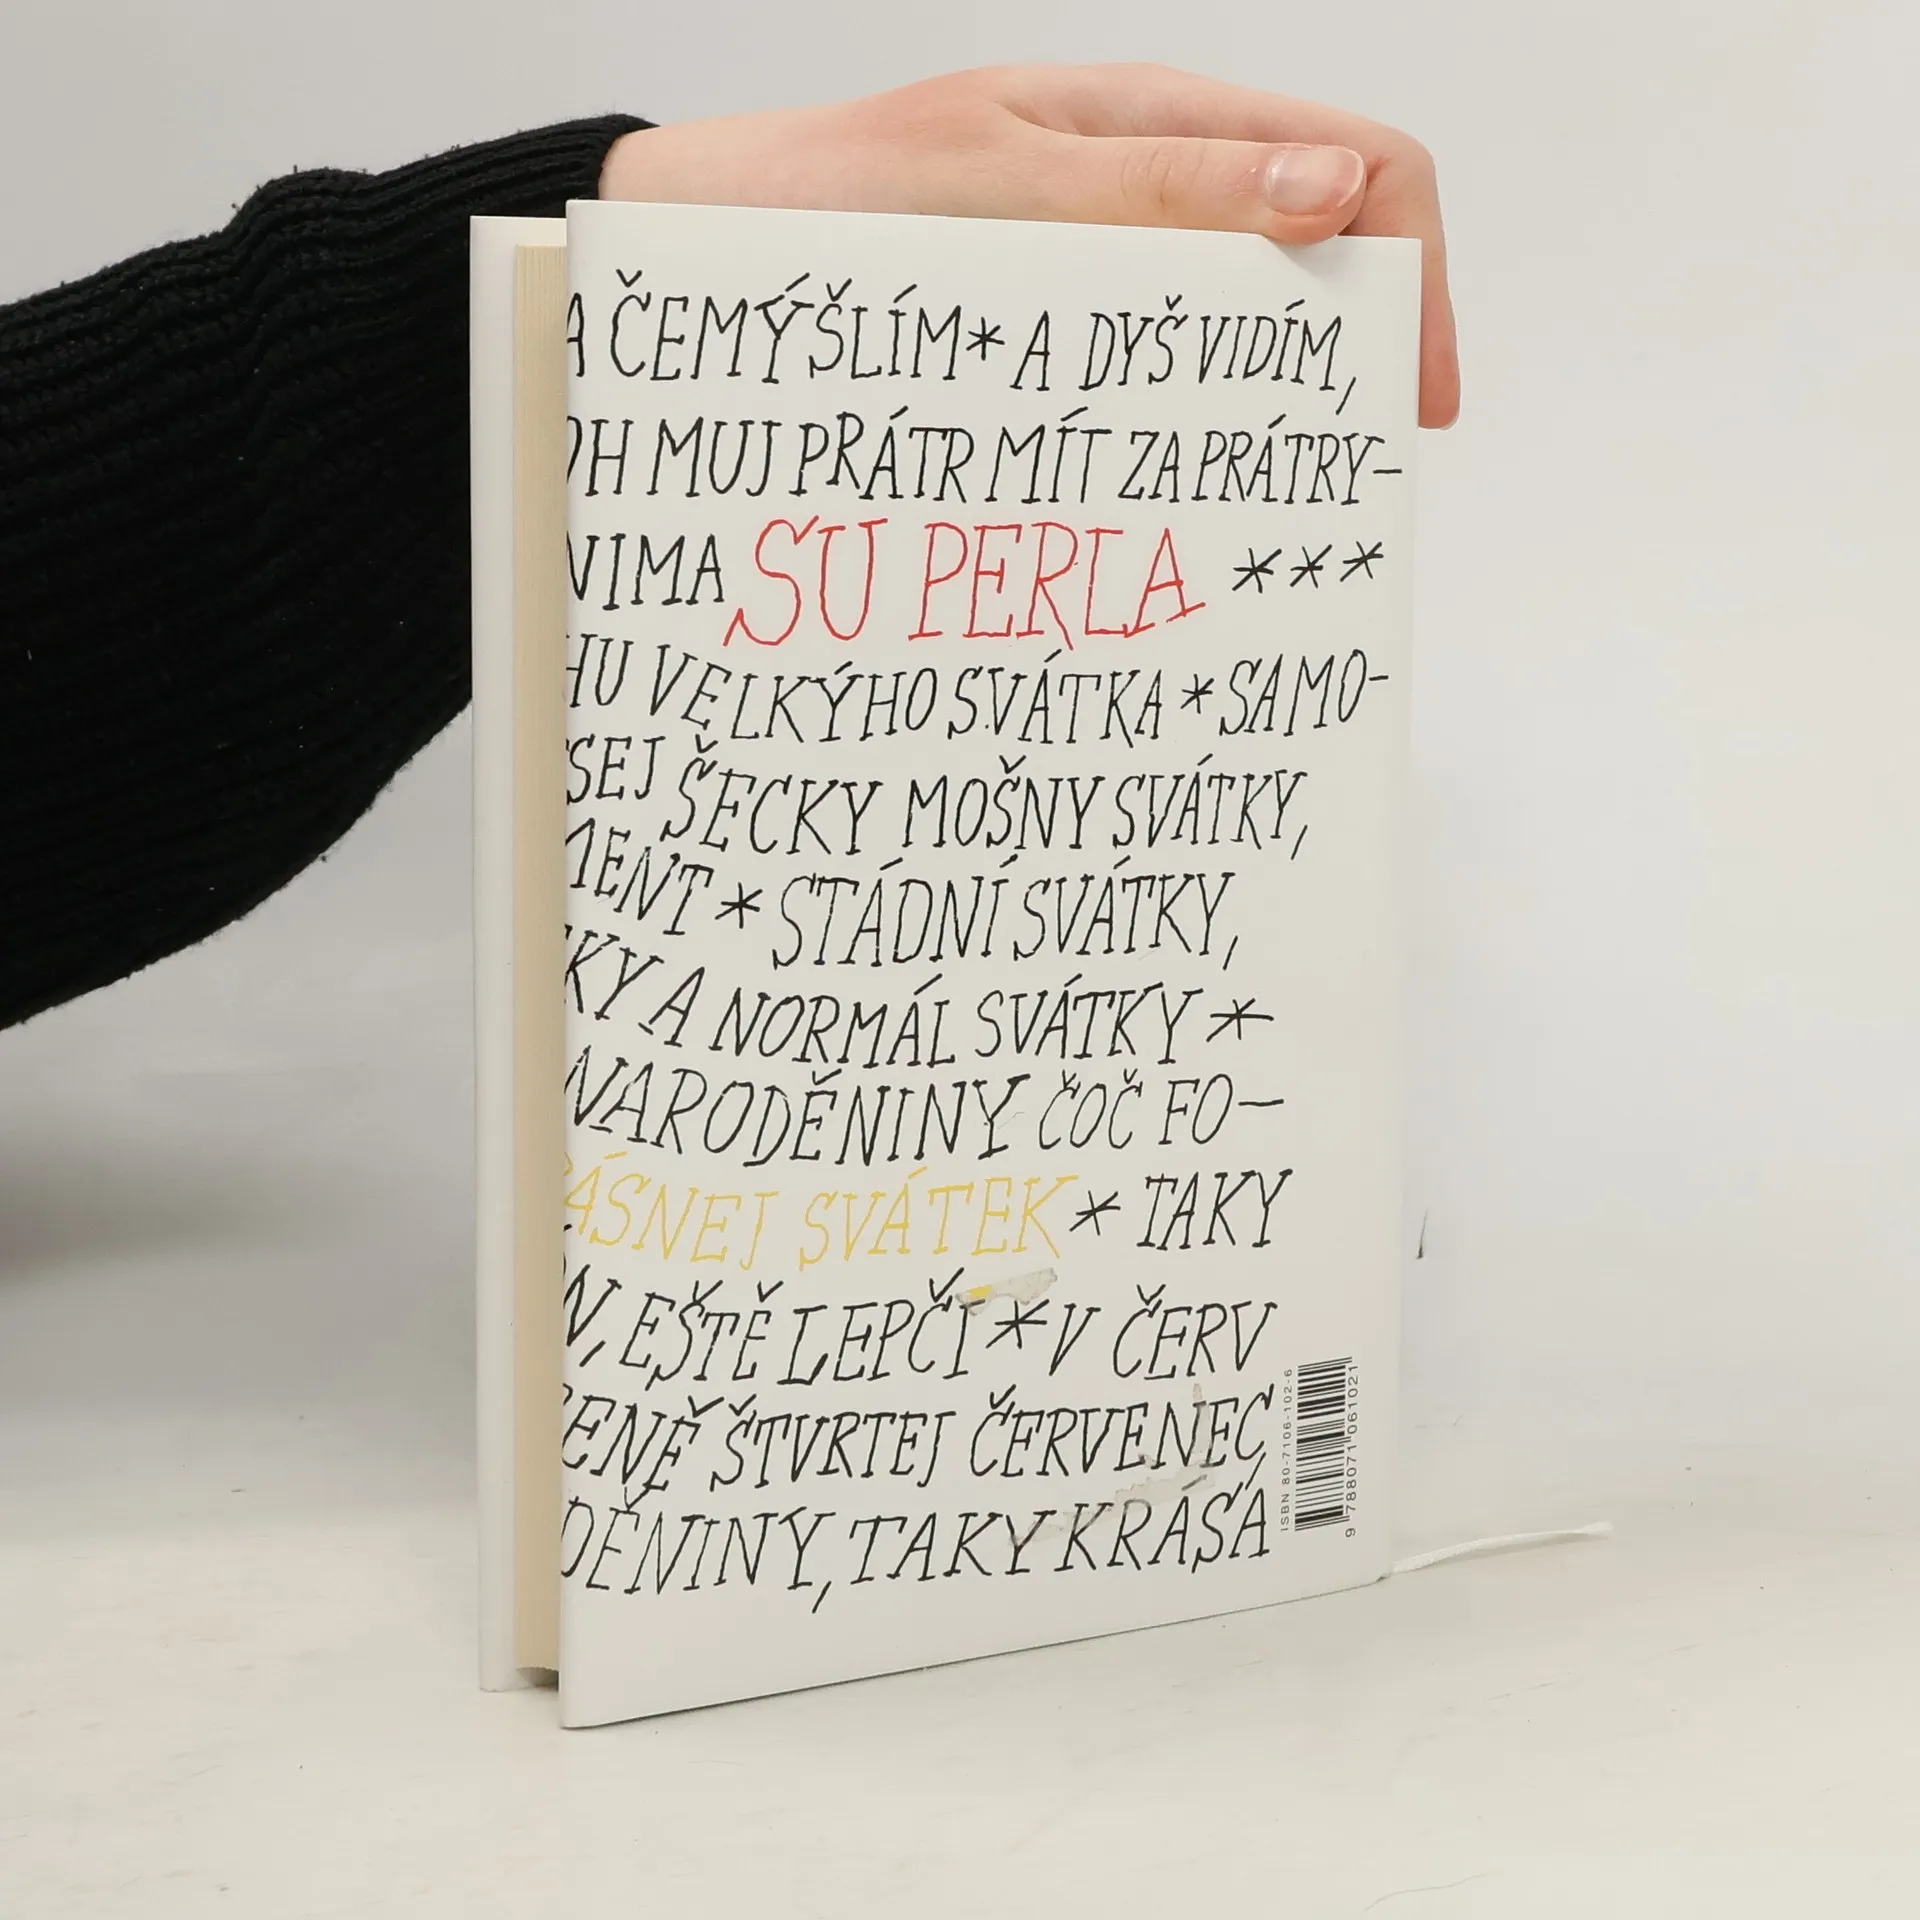 A ČEMÝŠLÍM * A DYŠ VIDÍM,
OH MUJ PRÁTR MÍT ZA PRÁTRY-
NIMA SU PERLA ***
HU VELKÝHO SVÁTKA * SAMO-
SEJ ŠECKY MOŠNY SVÁTKY,
MENT * STÁDNÍ SVÁTKY,
KY A NORMÁL SVÁTKY *
NARODĚNINY ČOČ FO-
ÁSNEJ SVÁTEK * TAKY
N, EŠTĚ LEPČÍ * V ČERV
ENĚ ŠTVRTEJ ČERVENEC
DĚNINY, TAKY KRÁSÁ
ISBN 80-7106-102-6
9 788071 061021